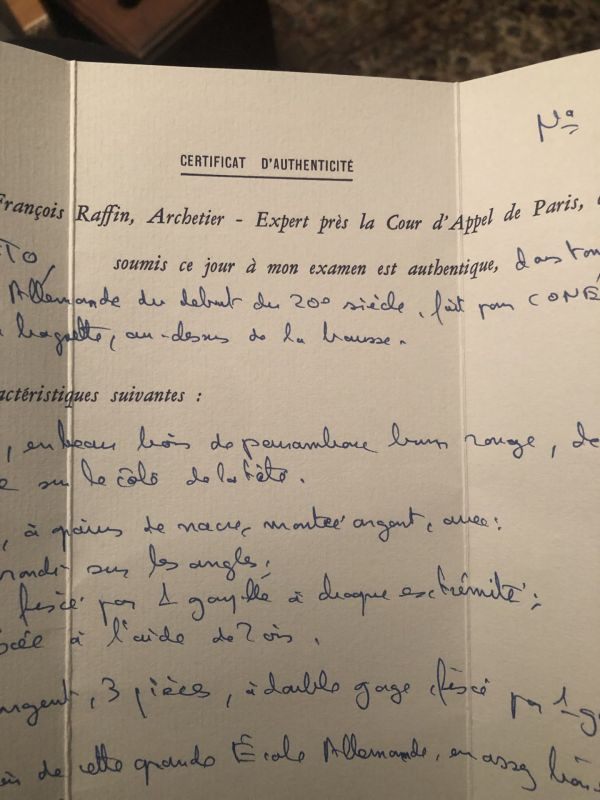 Nº
CERTIFICAT D'AUTHENTICITÉ
François Raffin, Archetier - Expert près la Cour d'Appel de Paris,
TO, soumis ce jour à mon examen est authentique, dans
Allemande du début du 20e siècle, fait pour CONE
baguette, au-dessus de la hausse.
actéristiques suivantes :
, en beau bois de pernambouc brun rouge, de
sur le côté de la tête.
, à pans de nacre, montée argent, avec:
sur les angles;
fixée par 1 goupille à chaque extrémité;
à l'aide de 2 vis.
argent, 3 pièces, à double gage, fixé par 1 g
de cette grande École Allemande, en assez bon